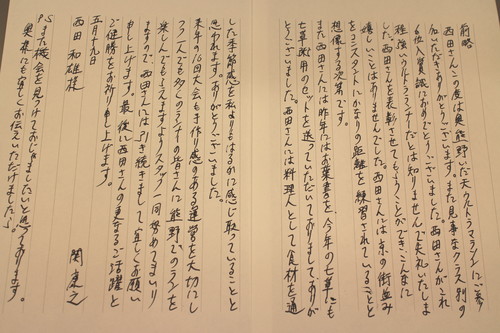 前略
西田さんこの度は奥熊野いだ天ウルトラマラソンにご参
加いただきありがとうございます。また見事なクラス別の
6位入賞誠におめでとうございました。西田さんがこれ
程強いウルトラランナーだとは知りませんで失礼いたしま
した。西田さんを表彰させてもらうことができ、こんなに
嬉しいことはありませんでした。西田さんは京の街並み
をコンスタントにかなりの距離を練習されていることと
想像する次第です。
また西田さんには昨年にはお葉書を、今年の七草にも
七草採用のセットを送っていただいておりまして、ありが
とうございました。西田さんには料理人として食材を通
した季節感を私よりもはるかに感じ取っていることと
思われます。ありがとうございました。
来年の16回大会も手作り感のある運営を大切にし
つつ一人でも多くのランナーの皆さんに熊野でのランを
楽しんでもらえますようスタッフ一同努めてまいり
ますので、西田さんには引き続きまして宜しくお願い
申し上げます。最後に西田さんの更なるご活躍と
ご健勝をお祈り申し上げます。
五月十九日
西田和雄様
関康之
P.Sまた機会を見つけておじゃましたいと思っております。
奥様にも宜しくお伝えいただけましたら。